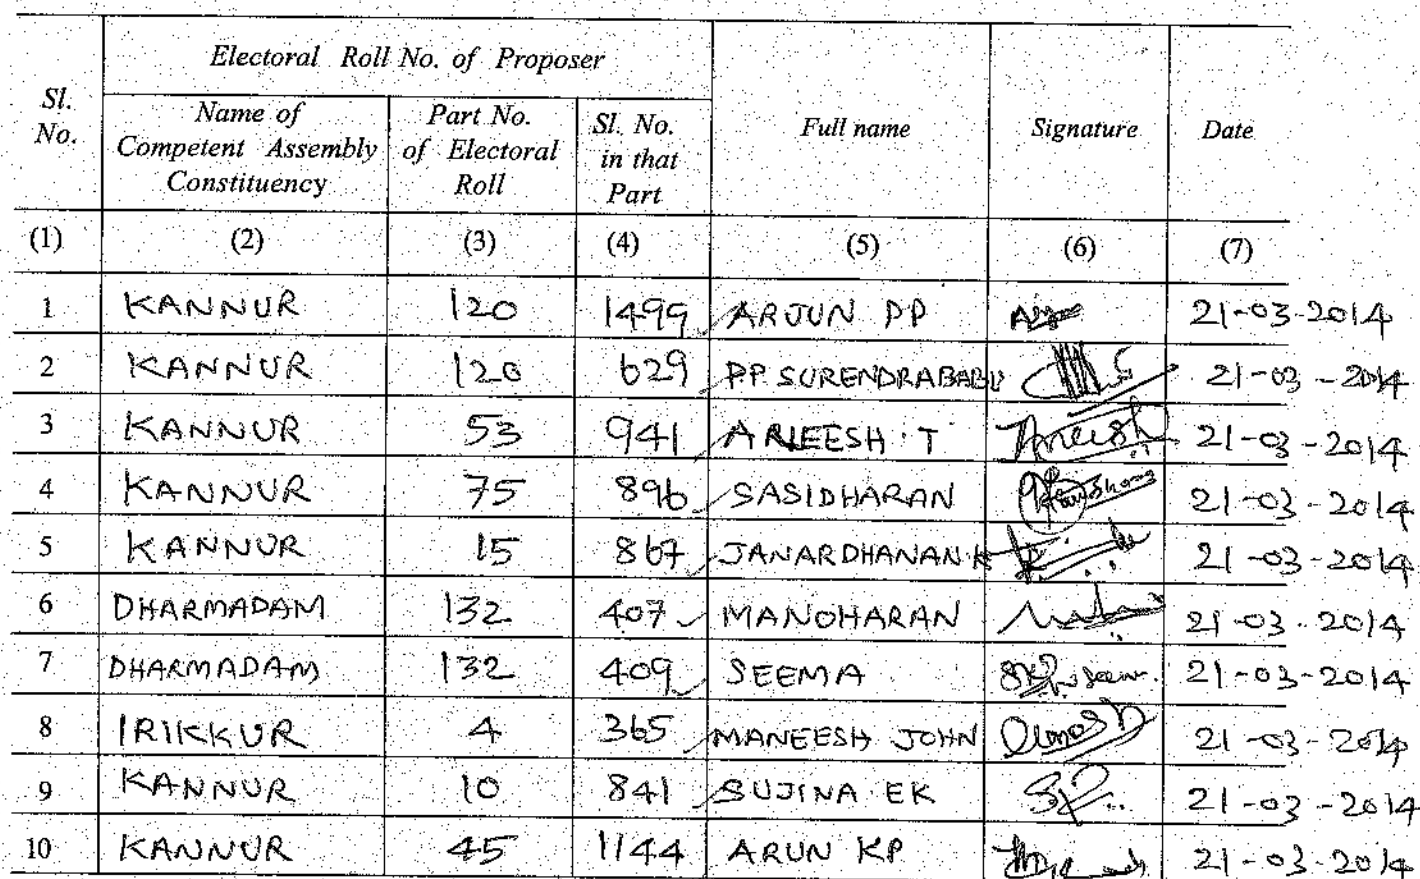 Electoral Roll No. of Proposer
Sl. No. Name of Competent Assembly Constituency Part No. of Electoral Roll Sl. No. in that Part Full name Signature Date
(1) (2) (3) (4) (5) (6) (7)
1 KANNUR 120 1499 ARJUN PP 21-03-2014
2 KANNUR 120 629 P.P SURENDRABABU 21-03-2014
3 KANNUR 53 941 ANEESH T Aneesh 21-03-2014
4 KANNUR 75 896 SASIDHARAN 21-03-2014
5 KANNUR 15 867 JANARDHANAN K 21-03-2014
6 DHARMADAM 132 407 MANOHARAN 21-03-2014
7 DHARMADAM 132 409 SEEMA 21-03-2014
8 IRIKKUR 4 365 MANEESH JOHN 21-03-2014
9 KANNUR 10 841 SUJINA EK 21-03-2014
10 KANNUR 45 1144 ARUN KP 21-03-2014